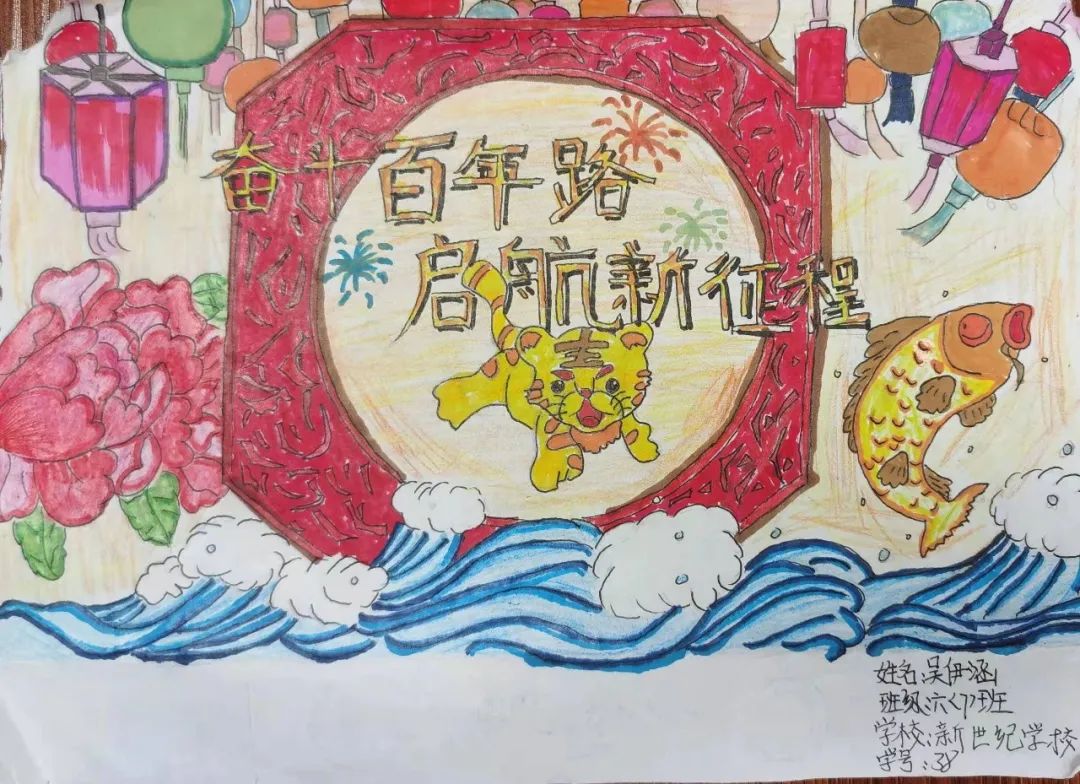 奋斗百年路
启航新征程
姓名:吴伊涵
班级:六(7)班
学校:新世纪学校
学号:38